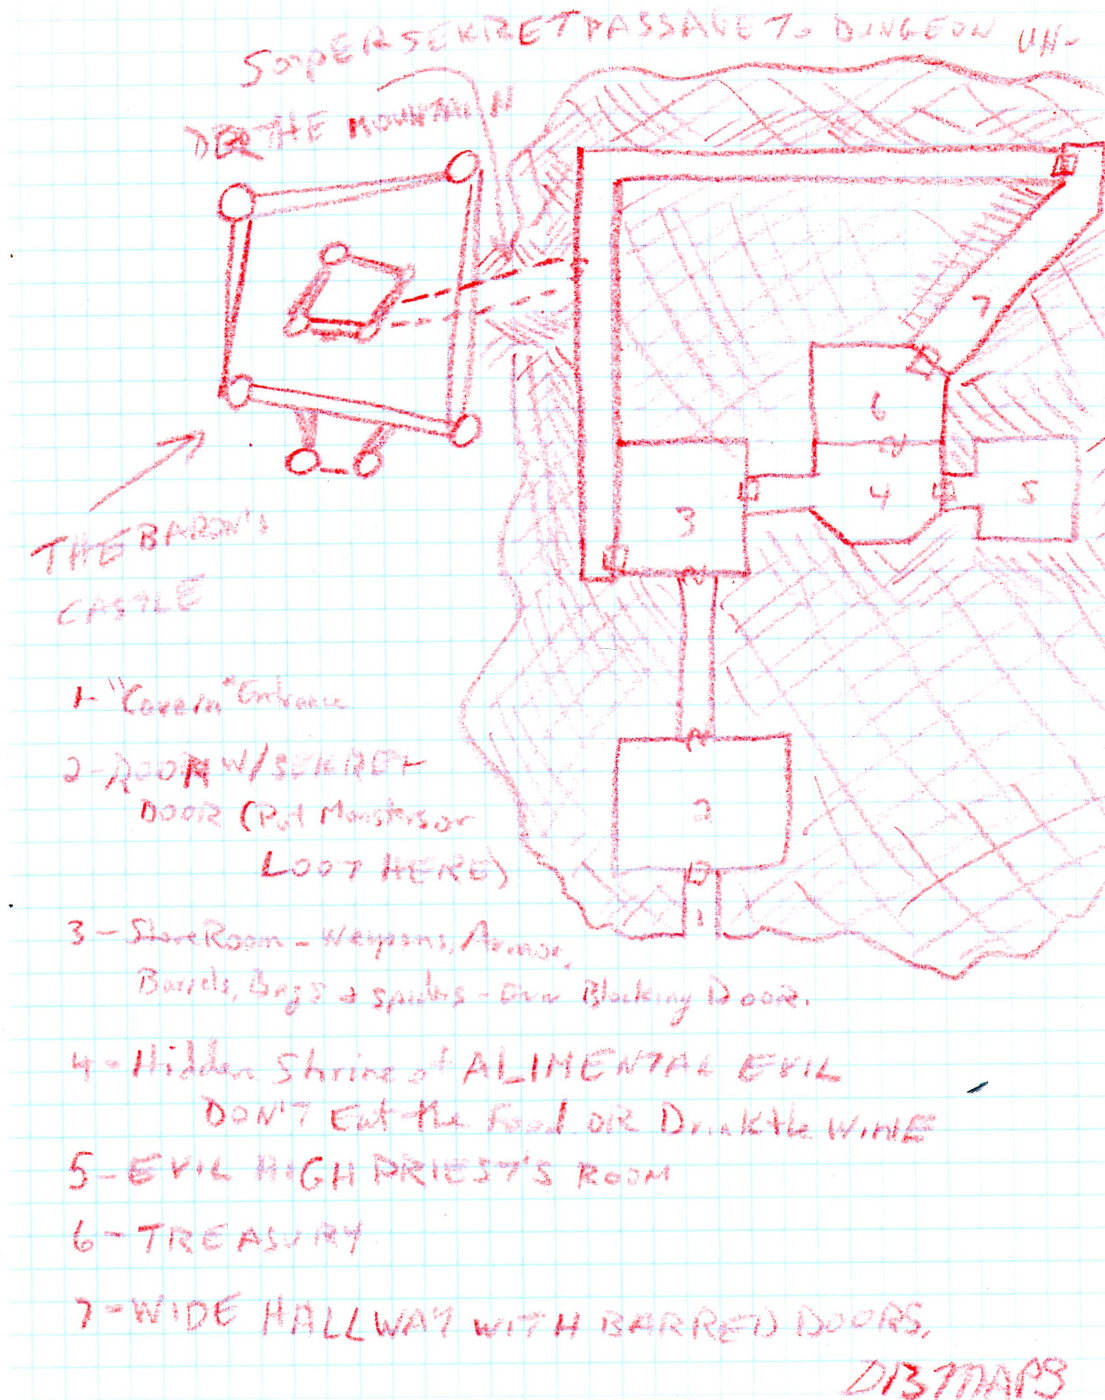 SOOPER SEKRET PASSAGE TO DUNGEON UN-
DER THE MOUNTAIN
7
6
3
4
5
THE BARON'S
CASTLE
1- "Cavern" Entrance
2-ROOM W/SEKRET
DOOR (Put Monsters or
LOOT HERE)
2
1
3- StoreRoom - Weapons, Armor,
Barrels, Bags & spiders - Blocking Door.
4- Hidden Shrine of ALIMENTAL EVIL
DON'T Eat the Food OR Drink the WINE
5- EVIL HIGH PRIEST'S ROOM
6-TREASURY
7-WIDE HALLWAY WITH BARRED DOORS.